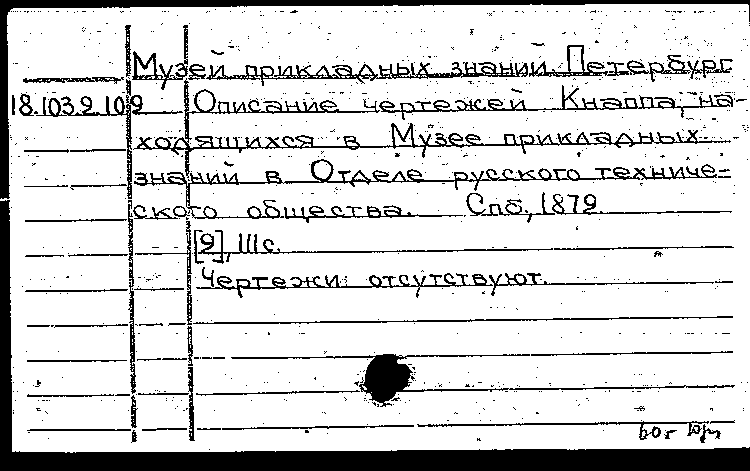 Музей прикладных знаний. Петербург
18.103.2.109 Описание чертежей Кнаппа, на-
ходящихся в Музее прикладных
знаний в Отделе русского техниче-
ского общества. Спб., 1879
[9], 111с.
Чертежи отсутствуют.